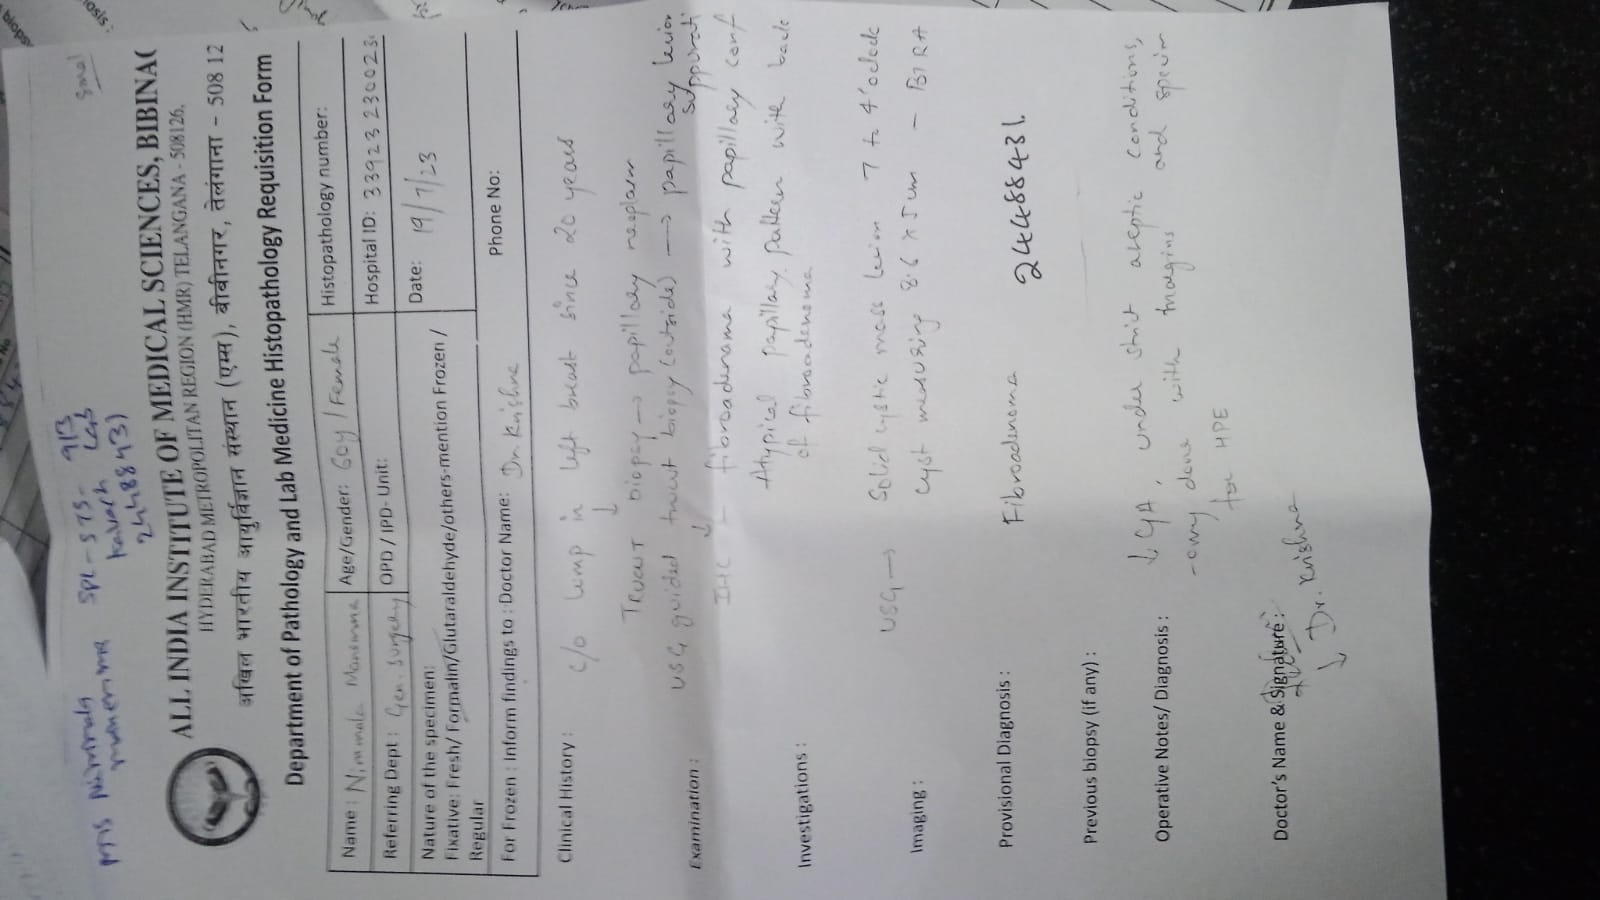 Mrs Nimmala SPL-575- 913
Manemma Kavach Lab
24488431
ALL INDIA INSTITUTE OF MEDICAL SCIENCES, BIBINAG
HYDERABAD METROPOLITAN REGION (HMR) TELANGANA - 508126.
अखिल भारतीय आयुर्विज्ञान संस्थान (एम्स), बीबीनगर, तेलंगाना - 508 12
Department of Pathology and Lab Medicine Histopathology Requisition Form
Name : Nimmala Manemma Age/Gender: 60y/Female Histopathology number:
Referring Dept : Gen. Surgery OPD / IPD- Unit: Hospital ID: 33923230023
Nature of the specimen: Date: 19/7/23
Fixative: Fresh/ Formalin/Glutaraldehyde/others-mention Frozen /
Regular
For Frozen : Inform findings to : Doctor Name: Dr. Krishna Phone No:
Clinical History : c/o lump in left breast since 20 years
↓
Trucut biopsy → papillary neoplasm
Examination : USG guided trucut biopsy (outside) → papillary lesion
↓
IHC - fibroadenoma with papillary conf
Investigations : Atypical papillary pattern with back
of fibroadenoma
USG → Solid cystic mass lesion 7 to 4'oclock
Imaging : cyst measuring 8.6 x 5cm -
Provisional Diagnosis : Fibroadenoma 24488431
Previous biopsy (if any) :
Operative Notes/ Diagnosis : ↓ GA, under strict aseptic conditions,
done with margins and specim
for HPE
Doctor's Name & Signature :
↓ Dr. Krishna